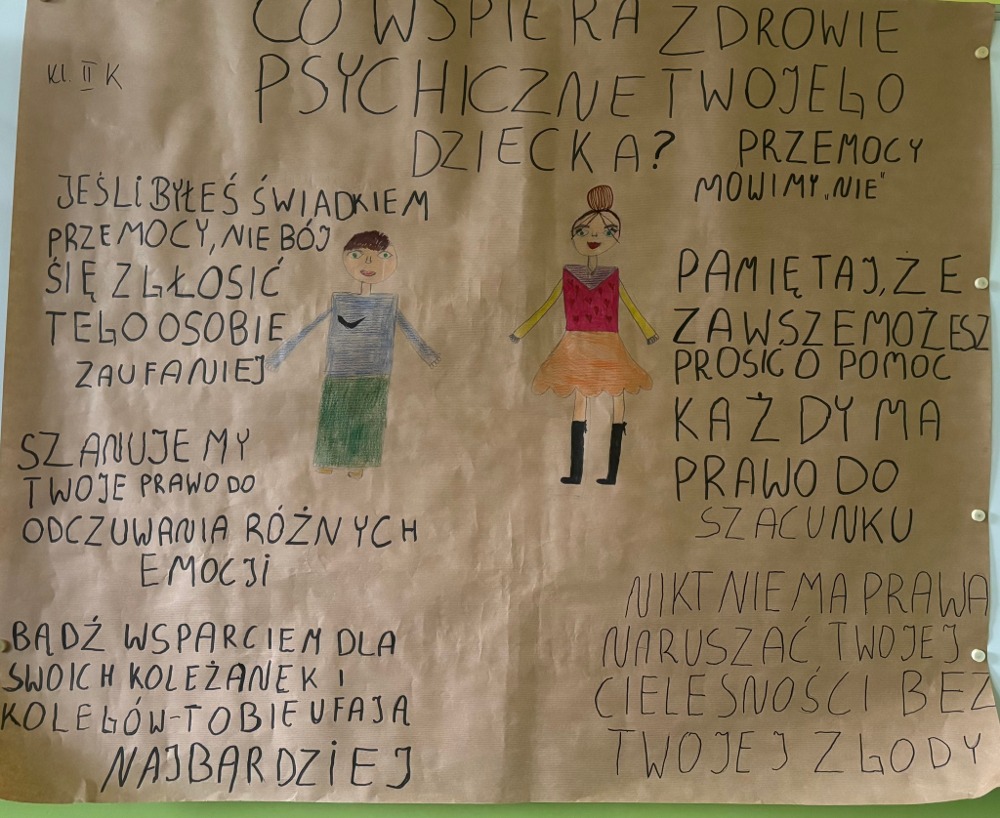 CO WSPIERA ZDROWIE
PSYCHICZNE TWOJEGO
DZIECKA?
Kl. II K
PRZEMOCY
MÓWIMY „NIE"
JEŚLI BYŁEŚ ŚWIADKIEM
PRZEMOCY, NIE BÓJ
ŚIĘ ZGŁOSIĆ
TEGO OSOBIE
ZAUFANIEJ
SZANUJEMY
TWOJE PRAWO DO
ODCZUWANIA RÓŻNYCH
EMOCJI
BĄDŹ WSPARCIEM DLA
SWOICH KOLEŻANEK I
KOLEGÓW-TOBIE UFAJĄ
NAJBARDZIEJ
PAMIĘTAJ, ŻE
ZAWSZE MOŻESZ
PROSIĆ O POMOC
KAŻDY MA
PRAWO DO
SZACUNKU
NIKT NIE MA PRAWA
NARUSZAĆ TWOJEJ
CIELESNOŚCI BEZ
TWOJEJ ZGODY